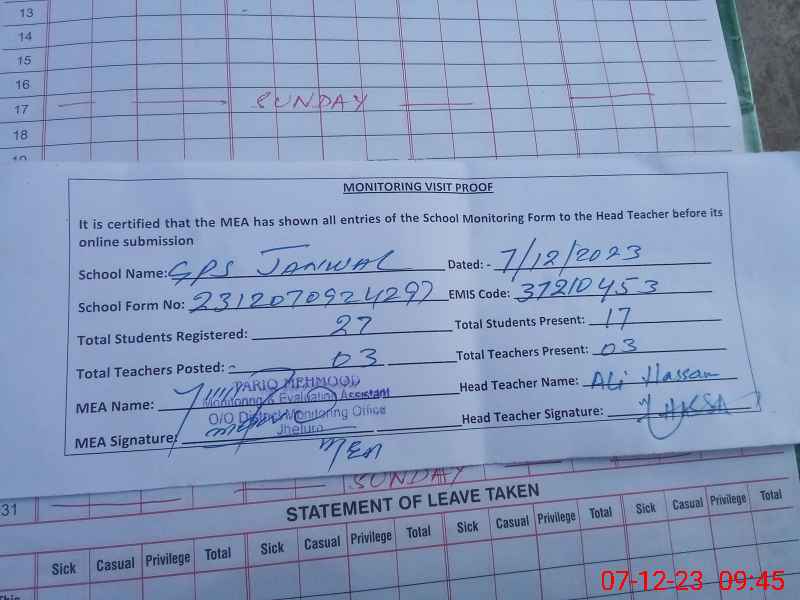 13
14
15
16
17 SUNDAY
18
MONITORING VISIT PROOF
It is certified that the MEA has shown all entries of the School Monitoring Form to the Head Teacher before its
online submission
School Name: GPS JANWAL Dated: - 7/12/2023
School Form No: 2312070924297 EMIS Code: 37210453
Total Students Registered: 27 Total Students Present: 17
Total Teachers Posted: - 03 Total Teachers Present: 03
MEA Name: TARIQ MEHMOOD Head Teacher Name: Ali Hassan
Monitoring & Evaluating Assistant
O/O District Monitoring Office
Jhelum
MEA Signature: Head Teacher Signature:
MEA
SUNDAY
31
STATEMENT OF LEAVE TAKEN
Sick Casual Privilege Total Sick Casual Privilege Total Sick Casual Privilege Total Sick Casual Privilege Total
07-12-23 09:45